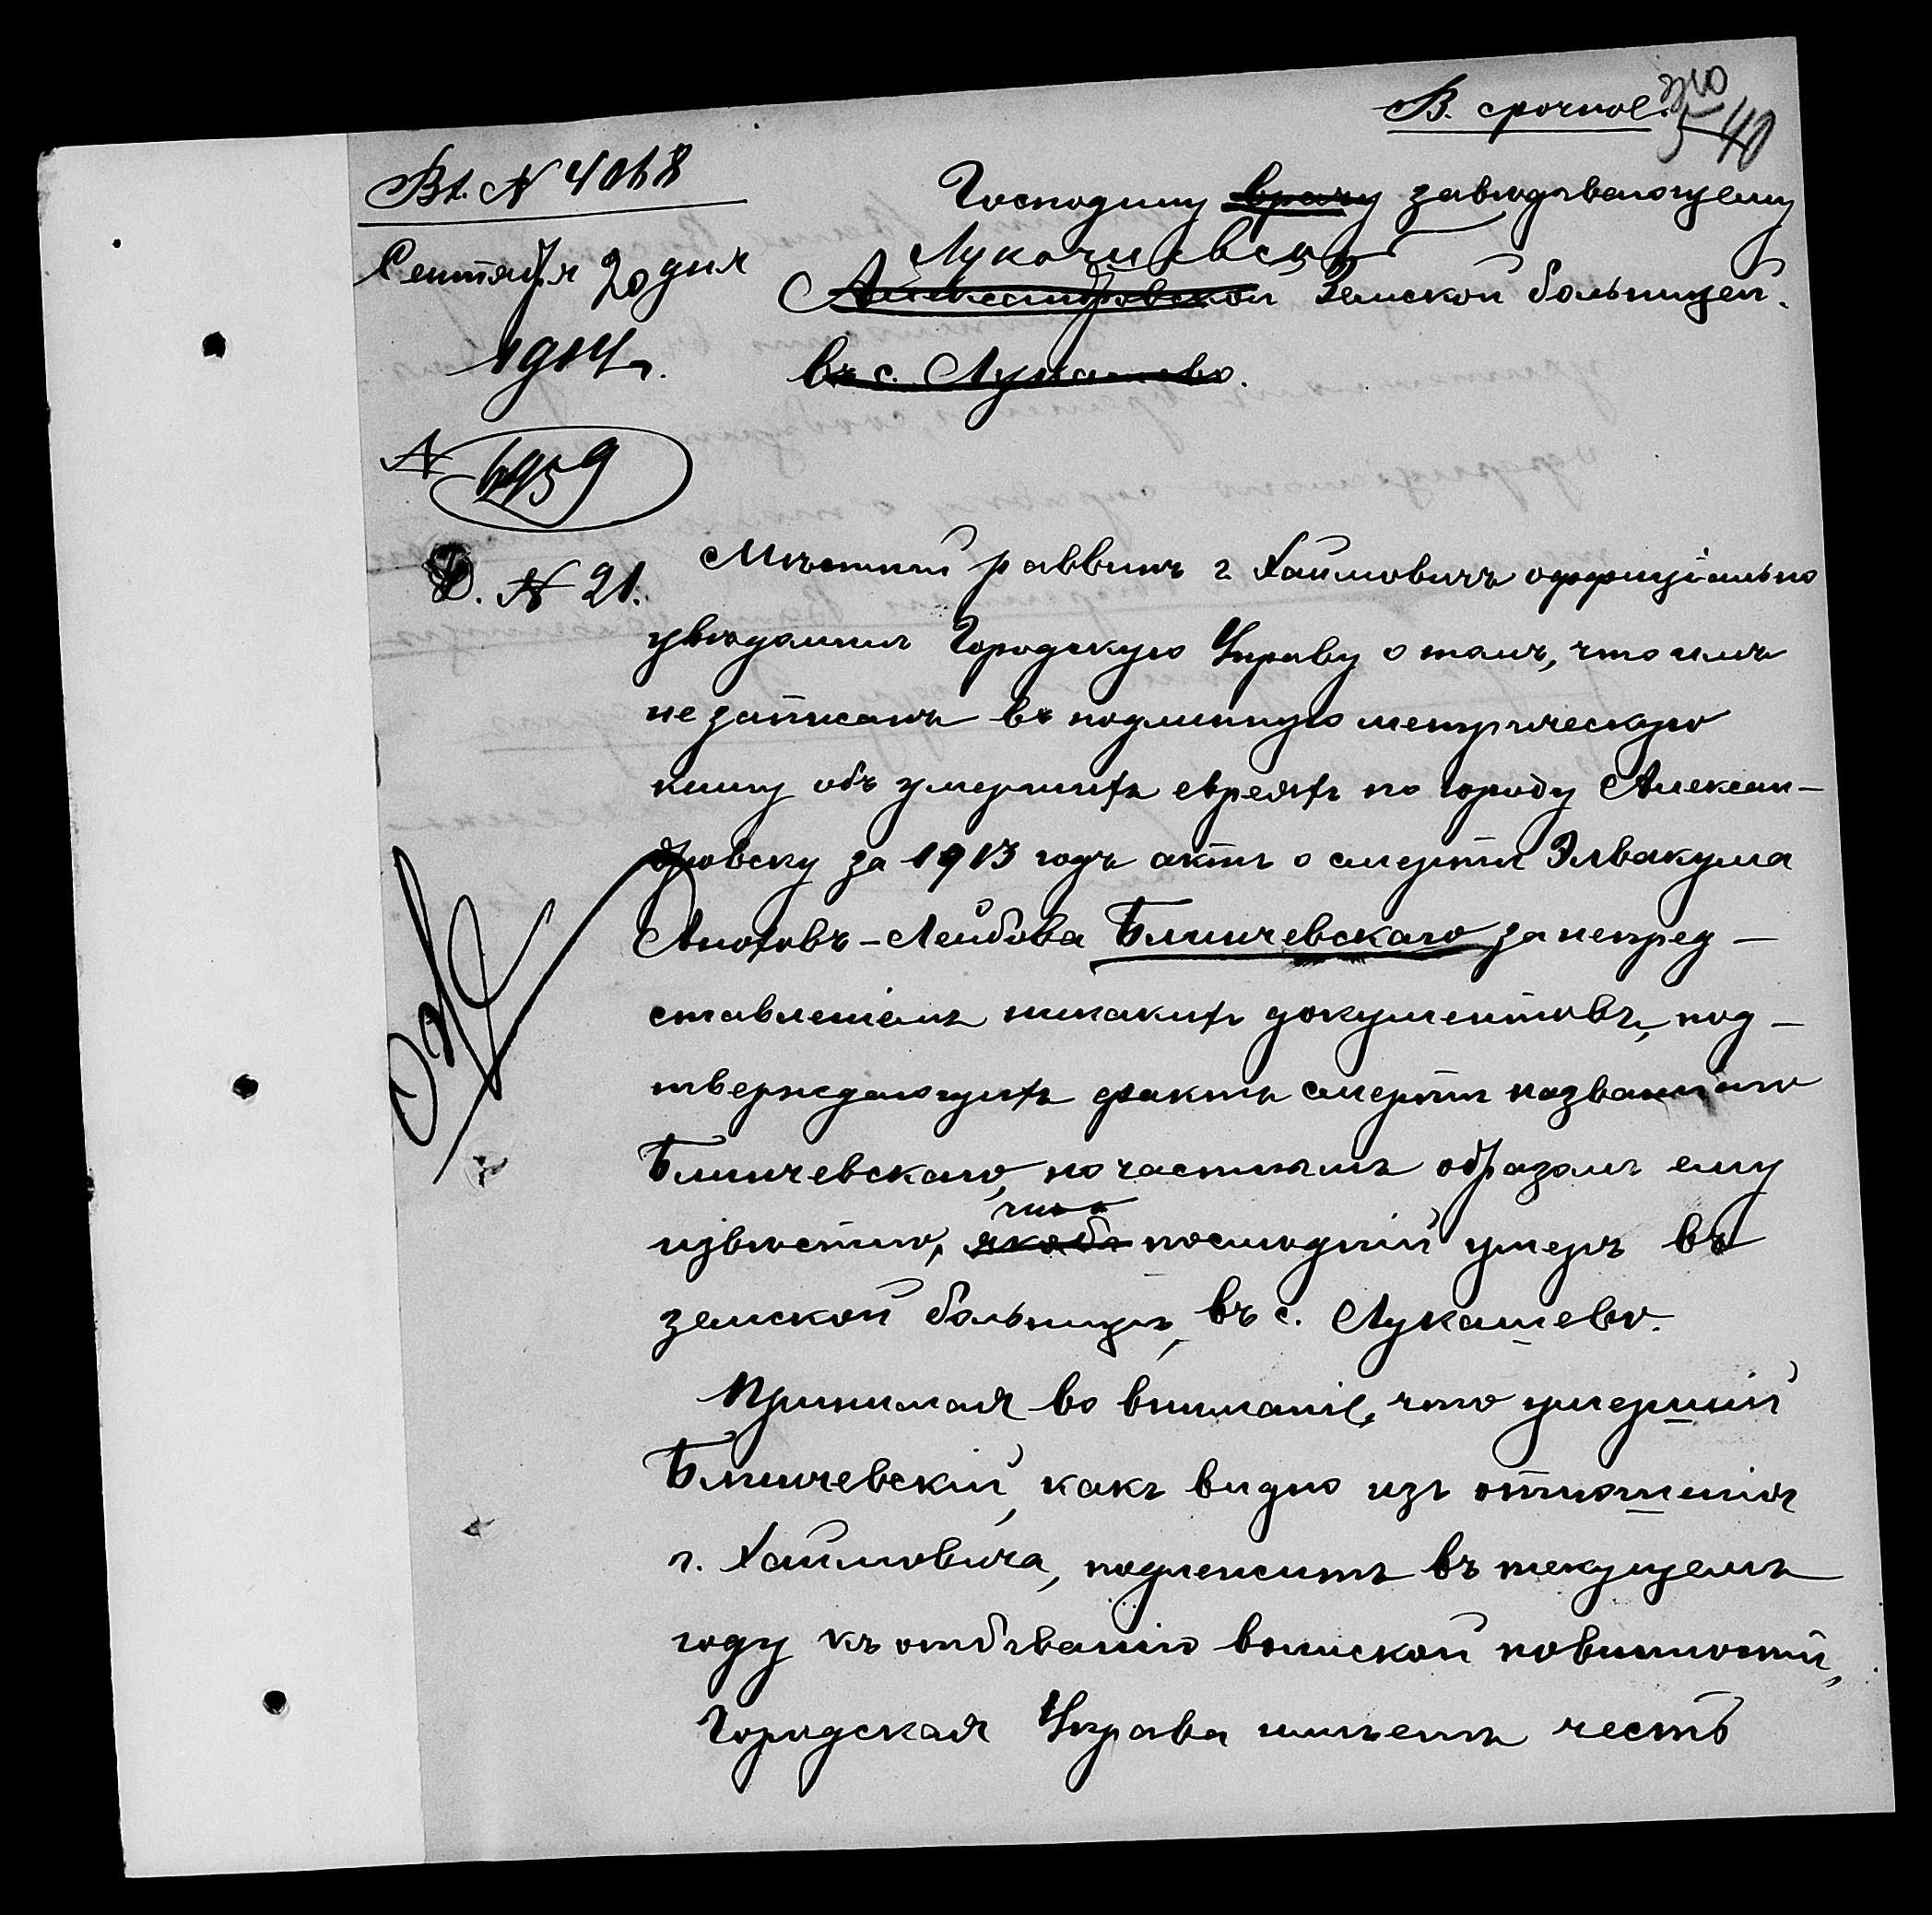 В. срочное.
40
Вх. № 4068
Господину врачу завѣдывающему
Сентября 20 дня
Лукашевск
Александровской Земской больницей.
1914 г.
въ с. Лукашево.
№ 6959
Д. № 21.
Мѣстный раввинъ г. Хаимовичъ оффиціально
увѣдомилъ Городскую Управу о томъ, что имъ
не записанъ въ подлинную метрическую
книгу объ умершихъ евреяхъ по городу Алексан-
дровску за 1913 годъ актъ о смерти Элвакума
Лейбова Блинчевскаго за непред-
ставленіемъ никакихъ документовъ, под-
тверждающихъ фактъ смерти названнаго
Блинчевскаго, но частнымъ образомъ ему
что
извѣстно, якобы послѣдній умеръ въ
земской больницѣ, въ с. Лукашево.
Принимая во вниманіе, что умершій
Блинчевскій, какъ видно изъ отношенія
г. Хаимовича, подлежитъ въ текущемъ
году къ отбыванію воинской повинности,
Городская Управа имѣетъ честь